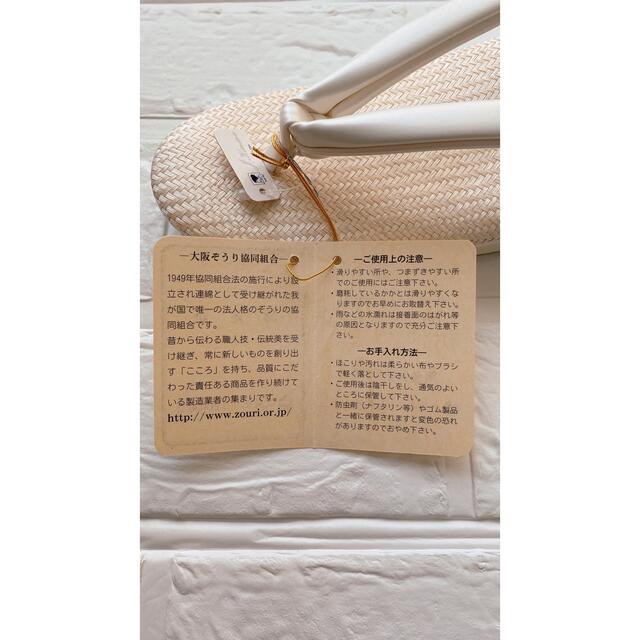 ―大阪ぞうり協同組合―
1949年協同組合法の施行により設
立され連綿として受け継がれた我
が国で唯一の法人格のぞうりの協
同組合です。
昔から伝わる職人技・伝統美を受
け継ぎ、常に新しいものを創り出
す「こころ」を持ち、品質にこだ
わった責任ある商品を作り続けて
いる製造業者の集まりです。
http://www.zouri.or.jp/
―ご使用上の注意―
・滑りやすい所や、つまずきやすい所
でのご使用にはご注意下さい。
・磨耗しているかかとは滑りやすくな
りますのでお早めにお取替え下さい。
・雨などの水濡れは接着面のはがれ等
の原因となりますので充分ご注意下
さい。
―お手入れ方法―
・ほこりや汚れは柔らかい布やブラシ
で軽く落として下さい。
・ご使用後は陰干しをし、通気のよい
ところに保管して下さい。
・防虫剤(ナフタリン等)やゴム製品
と一緒に保管されますと変色の恐れ
がありますのでおやめ下さい。